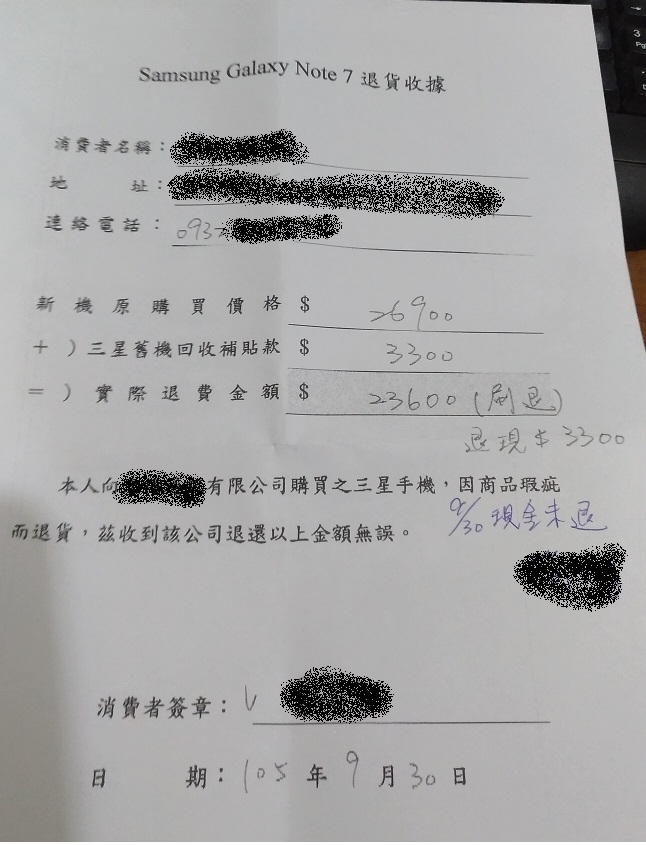 Samsung Galaxy Note 7 退貨收據
消費者名稱：
地 址：
連絡電話：093
新機原購買價格 $ 26900
+ ）三星舊機回收補貼款 $ 3300
= ）實際退費金額 $ 23600 (刷退)
退現 $ 3300
本人向 有限公司購買之三星手機，因商品瑕疵
而退貨，茲收到該公司退還以上金額無誤。 9/30 現金未退
消費者簽章： V
日 期：105 年 9 月 30 日